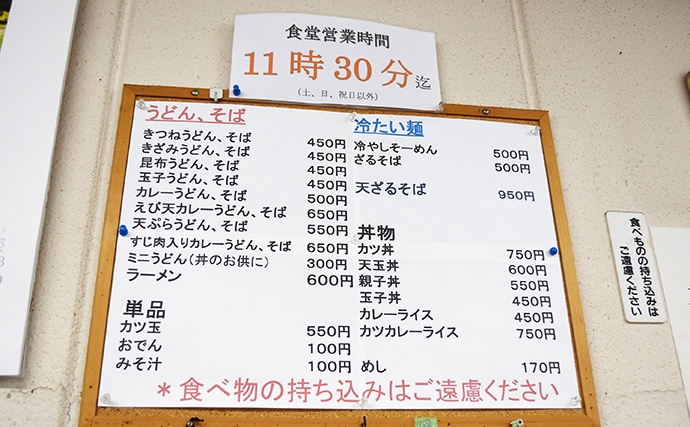 食堂営業時間
11時30分迄
(土、日、祝日以外)
うどん、そば
きつねうどん、そば 450円
きざみうどん、そば 450円
昆布うどん、そば 450円
玉子うどん、そば 450円
カレーうどん、そば 500円
えび天カレーうどん、そば 650円
天ぷらうどん、そば 550円
すじ肉入りカレーうどん、そば 650円
ミニうどん(丼のお供に) 300円
ラーメン 600円
単品
カツ玉 550円
おでん 100円
みそ汁 100円
冷たい麺
冷やしそーめん 500円
ざるそば 500円
天ざるそば 950円
丼物
カツ丼 750円
天玉丼 600円
親子丼 550円
玉子丼 450円
カレーライス 450円
カツカレーライス 750円
めし 170円
*食べ物の持ち込みはご遠慮ください
食べものの持ち込みは
ご遠慮ください